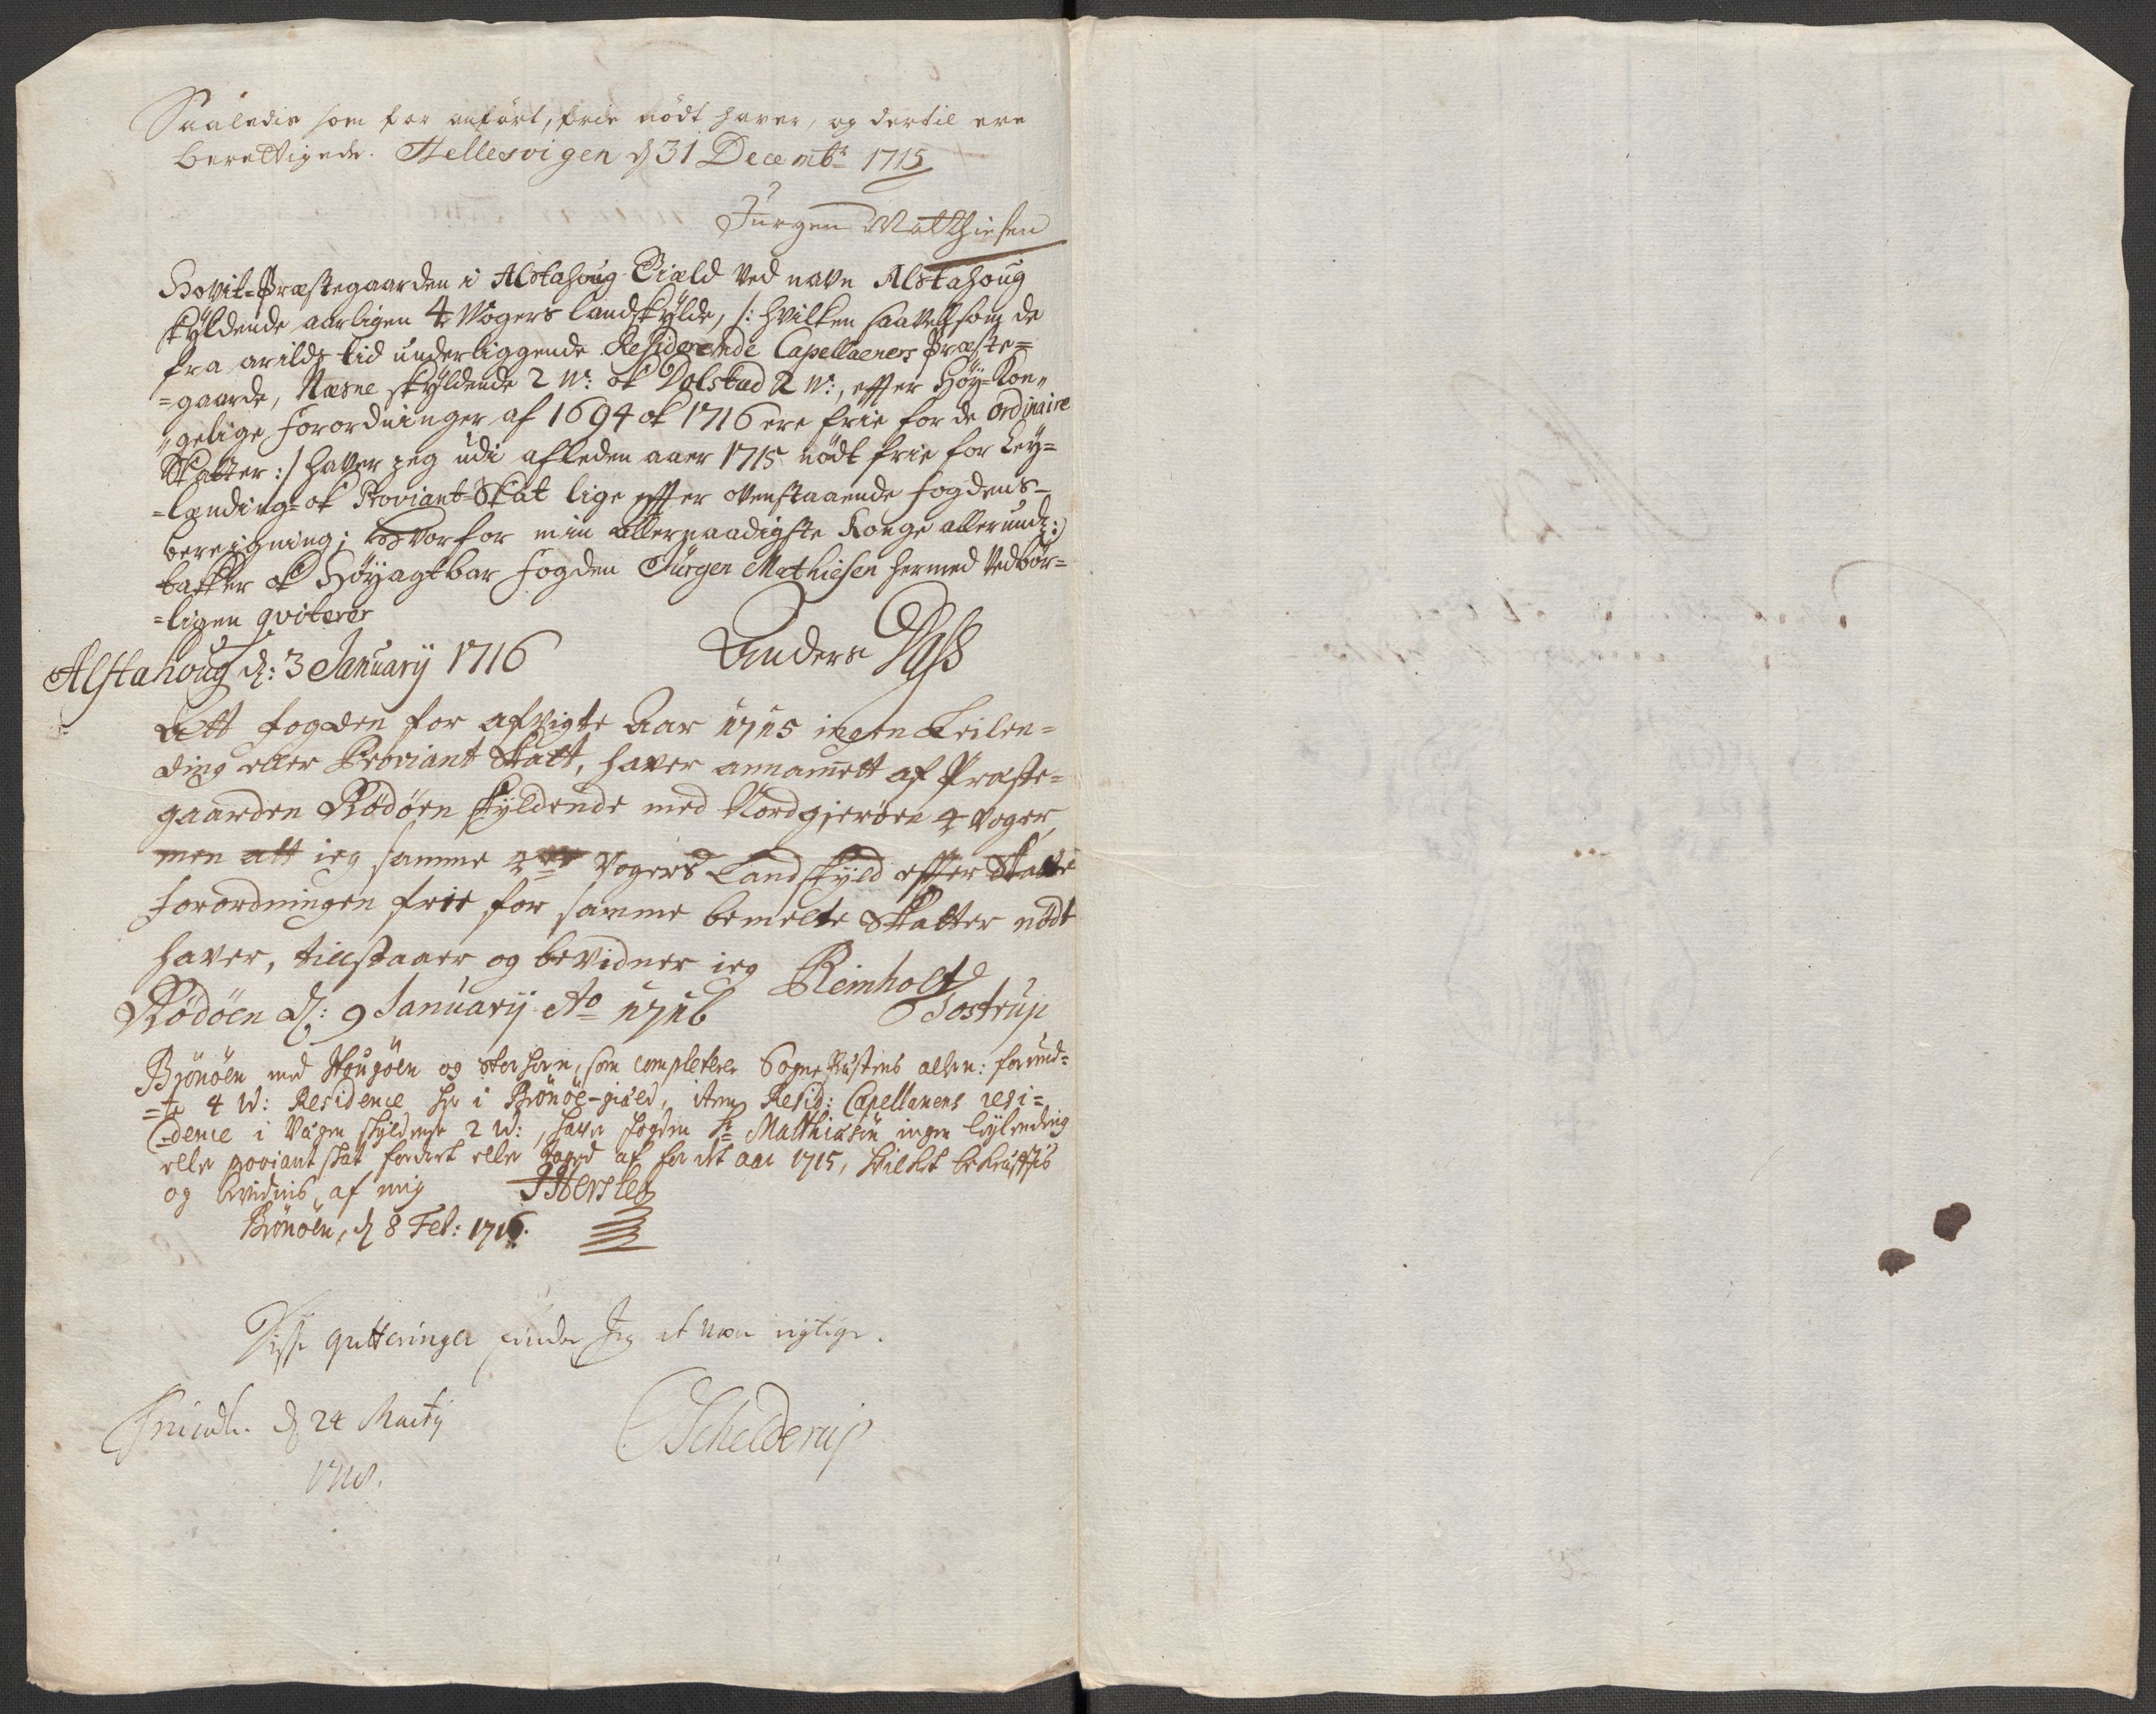 Saaledis som for anført, frie nødt haver, og dertil ere
berettigede. Hellesvigen d 31 Decembr 1715
Jurgen Matthiesen
Hovit-Præstegaarden i Alstahoug Giæld ved navn Alstahoug
skyldende aarligen 4 Wogers landskylde, /: hvilken saavelsom de
fra arilds tid underliggende Residerende Capellaeners Præste=
=gaarde, Næsne skyldende 2 W: ok Dolstad 2 W:, effter Høy-Kon„
„gelige forordninger af 1694 ok 1716 ere frie for de ordinaire
Skatter :/ haver jeg udi afleden aaer 1715 nødt frie for Ley=
=lænding- ok Proviant-Skat lige effter ovenstaaende fogdens
bereigning; hvorfor min allernaadigste Konge allerund:
takker ok Høyagtbar fogden Jürgen Mathiesen hermed vedbør=
=ligen qviterer
Alstahoug d: 3 January 1716 Anders Dass
Att fogden for afvigte Aar 1715 ingen Leilen=
ding eller Proviant Skatt, haver annammett af Præste=
gaarden Rødøen skyldende med Nordgierøen 4 Woger,
men att ieg samme 4re Wogers Landskyld effter Skatte
forordningen frie for samme bemelte Skatter nødt
haver, tillstaaer og bevidner ieg Reinholt
Rødøen d: 9 January Ao 1716 Tostrup
Brønøen med Hougøen og Storhorn, som completerer Sogne Præstens allern: forund=
=te 4 W: Residence her i Brønøe-giæld, item Resid: Capellanens resi=
=dence i Vågen skyldende 2 W:, haver fogden Sr Matthiasen ingen leylending
eller proviant skat fordret eller taged af for det aar 1715, hvilket bekræfftis
og bevidnis af mig JHersleb
Brønøen, d 8 Feb: 1716.
Disse qvitteringer finder Jeg at være rigtige.
d 24 Marty Schelderup